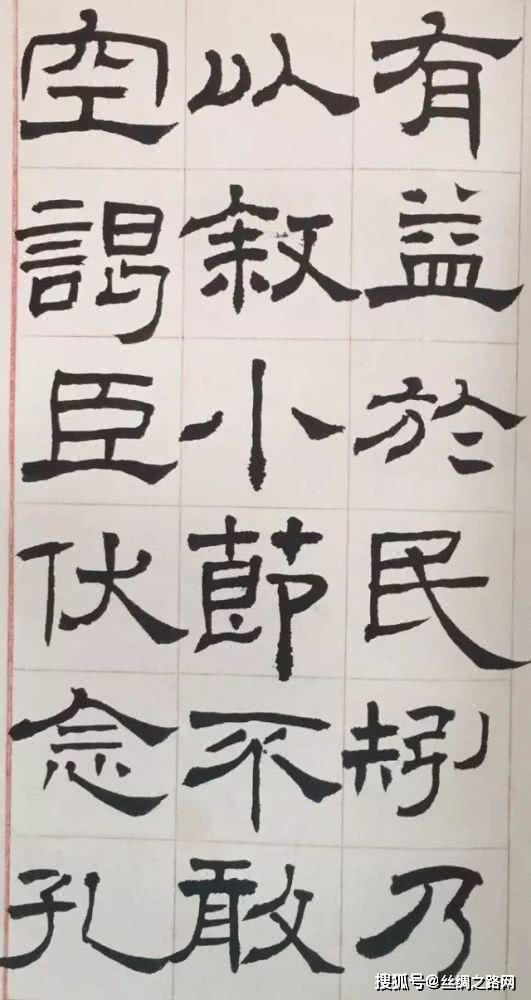 有益於民矧乃
以叙小節不敢
空謁臣伏念孔
搜狐号@丝绸之路网